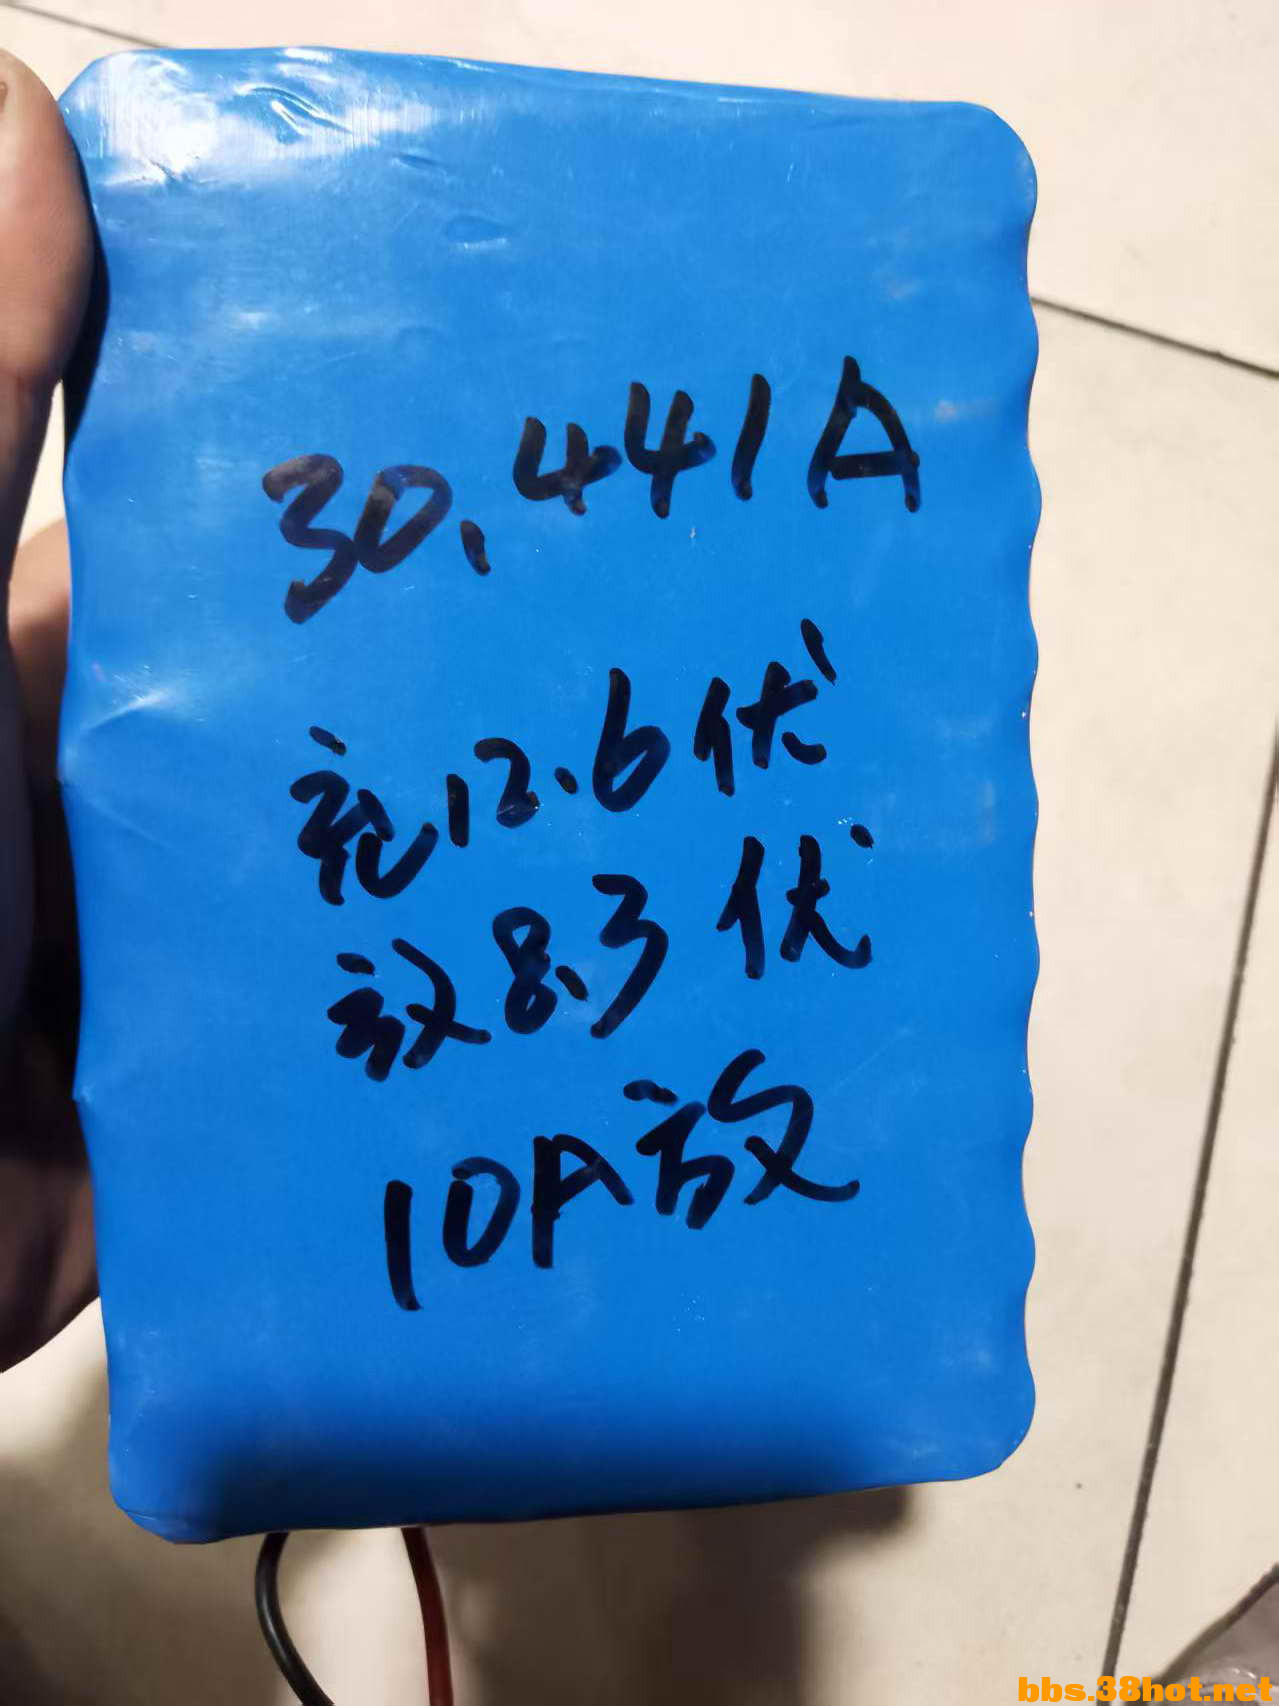 30.441A
充12.6伏
放8.3伏
10A放
bbs.38hot.net